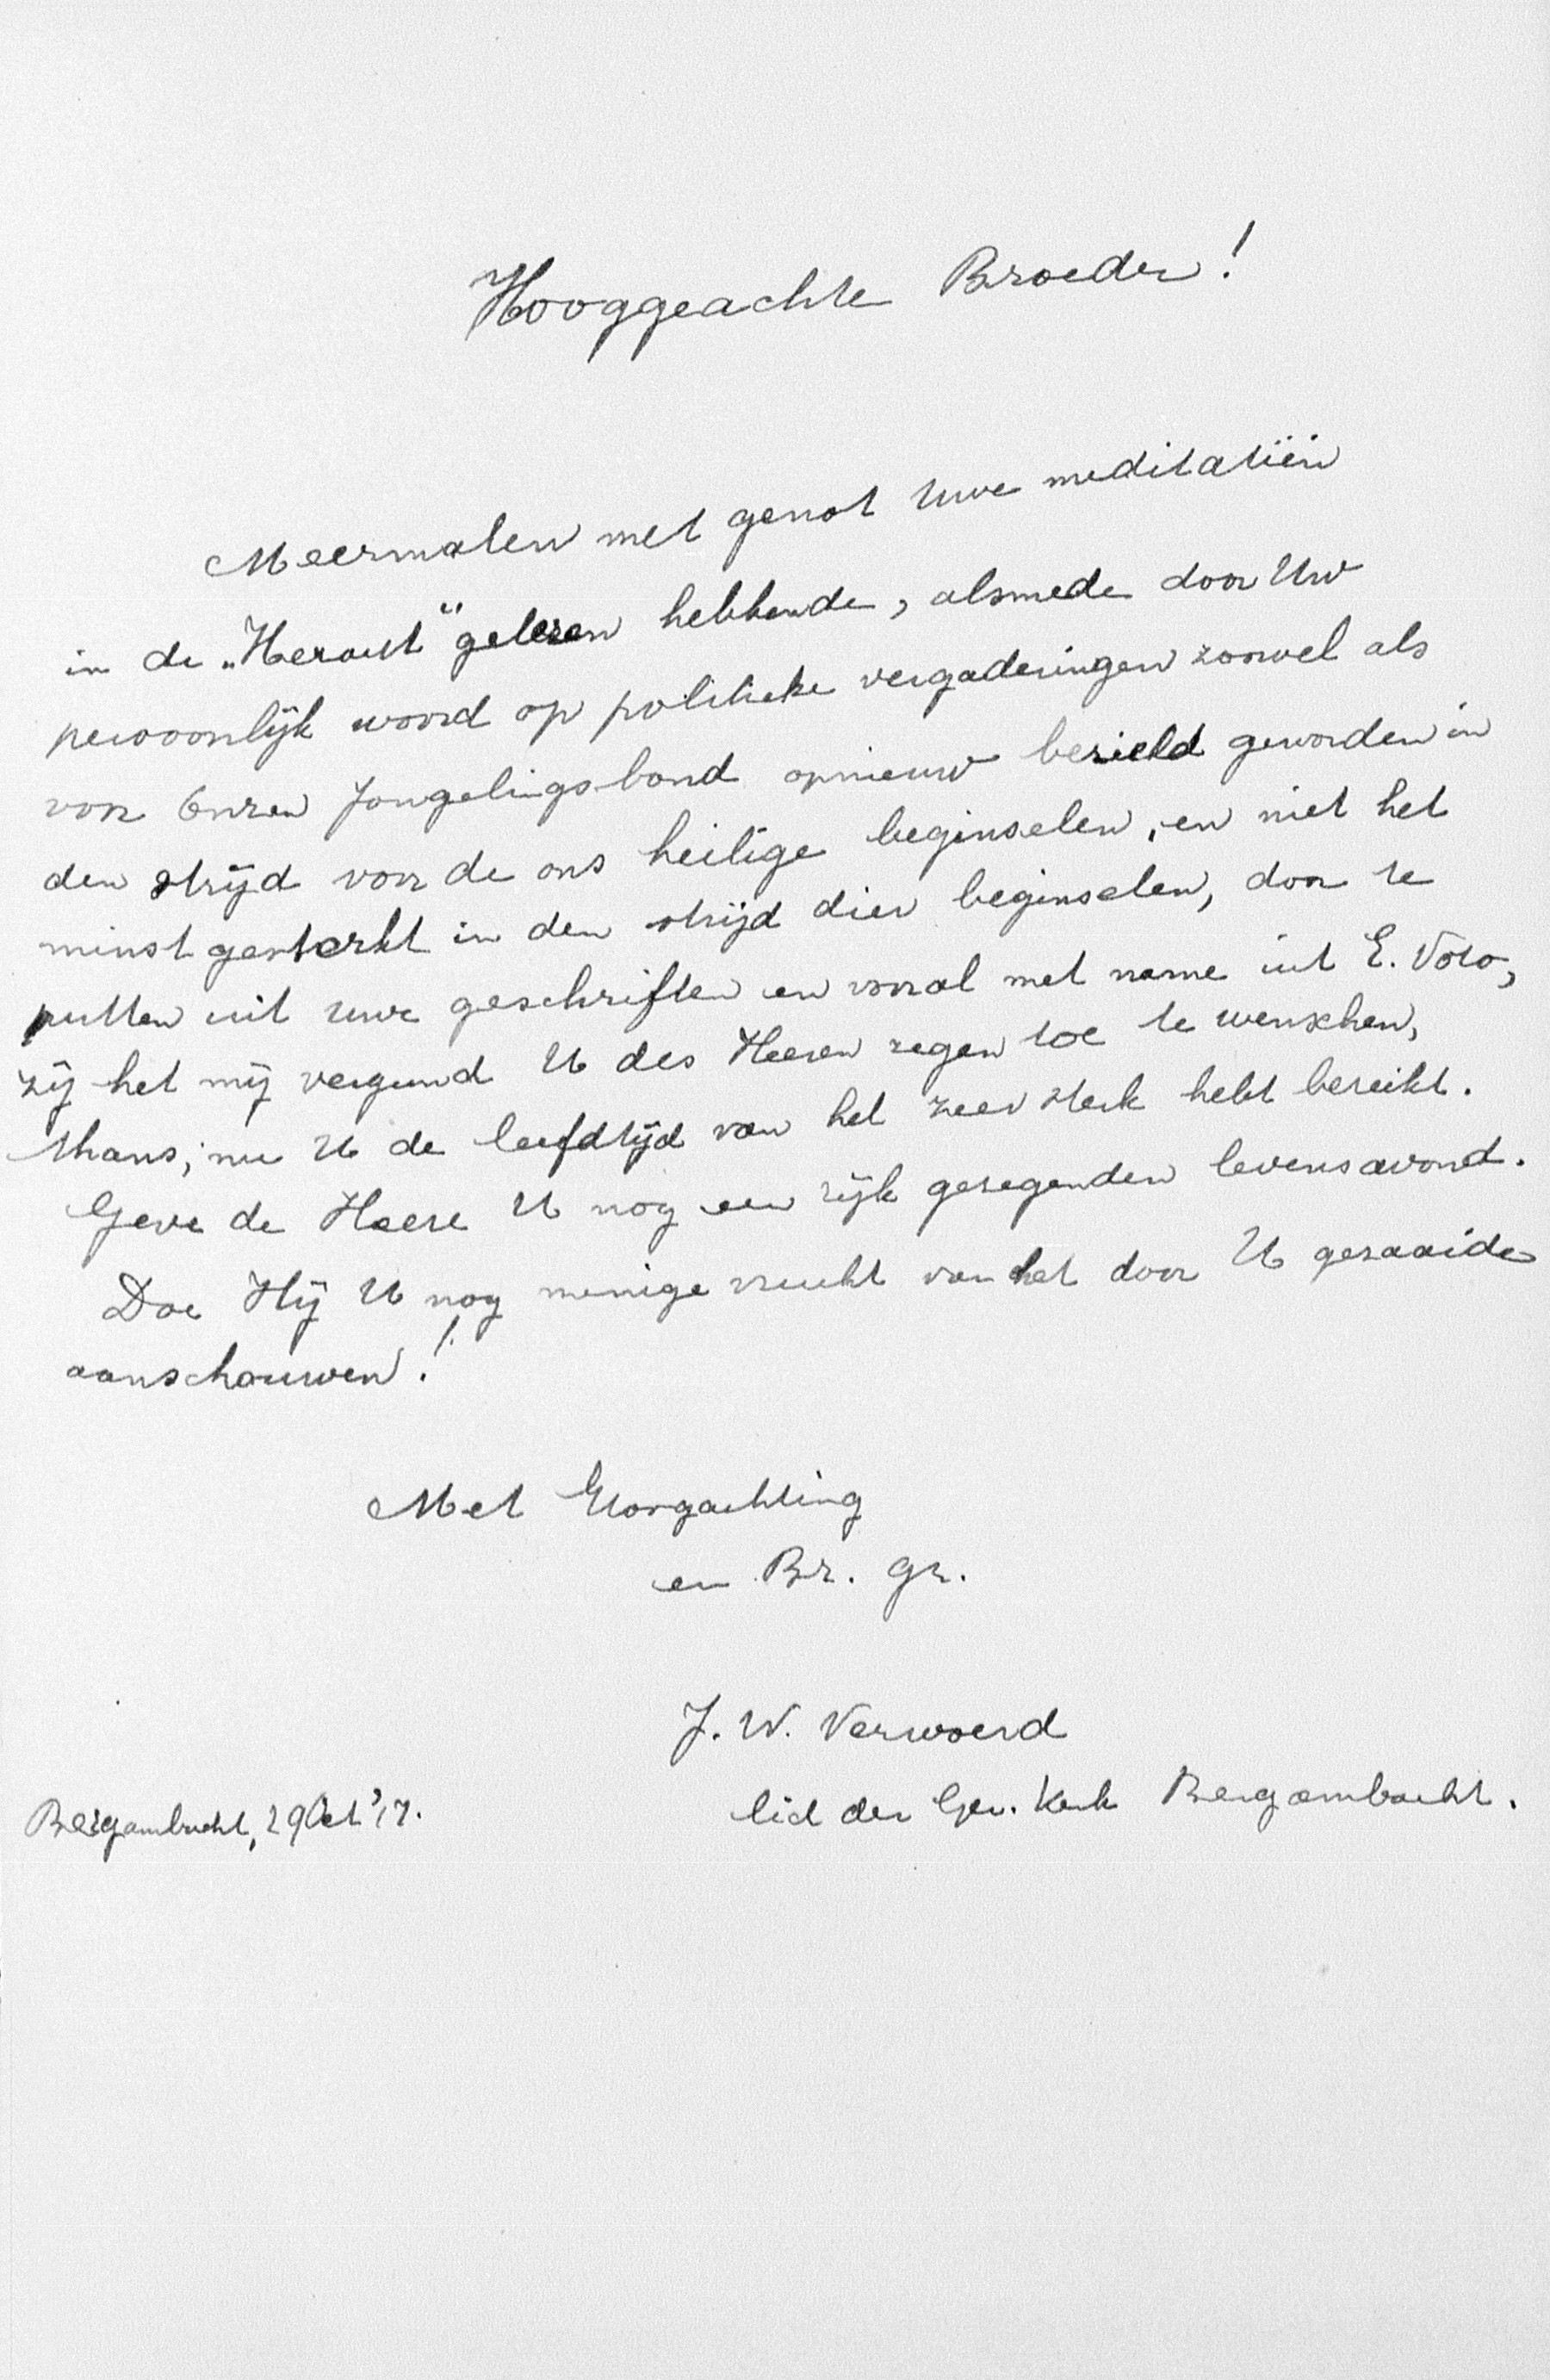 Hooggeachte Broeder!
Meermalen met genot Uwe meditatiën
in de „Heraut" gelezen hebbende, alsmede door Uw
persoonlijk woord op politieke vergaderingen zoowel als
voor Onzen Jongelingsbond opnieuw bezield geworden in
den strijd voor de ons heilige beginselen, en niet het
minst gesterkt in den strijd dier beginselen, door te
putten uit Uwe geschriften en vooral met name uit E. Voto,
zij het mij vergund U des Heeren zegen toe te wenschen,
thans, nu U de leefdtijd van het zeer sterk hebt bereikt.
Geve de Heere U nog een rijk gezegenden levensavond.
Doe Hij U nog menige vrucht van het door U gezaaide
aanschouwen!
Met Hoogachting
en Br. gr.
J. W. Verwoerd
lid der Ger. Kerk Bergambacht.
Bergambacht, 29 Oct '17.